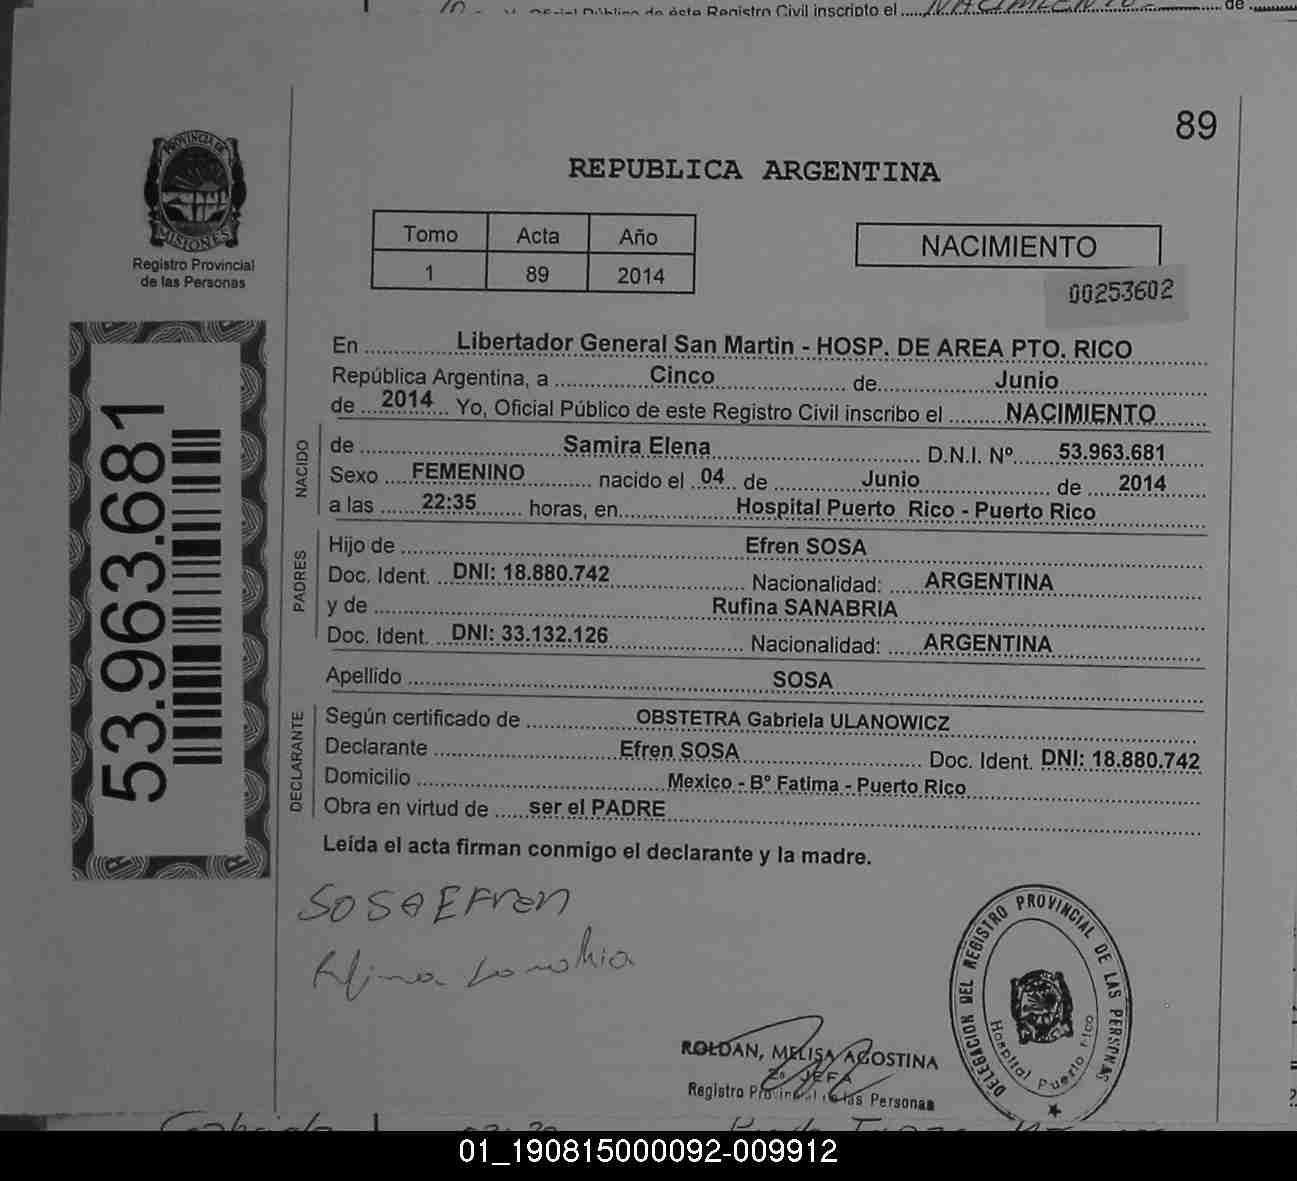 Oficial Público de éste Registro Civil inscripto el NACIMIENTO de
89
REPUBLICA ARGENTINA
PROVINCIA DE
MISIONES
Registro Provincial
de las Personas
Tomo Acta Año
1 89 2014
NACIMIENTO
00253602
53.963.681
En Libertador General San Martin - HOSP. DE AREA PTO. RICO
República Argentina, a Cinco de Junio
de 2014 Yo, Oficial Público de este Registro Civil inscribo el NACIMIENTO
NACIDO
de Samira Elena D.N.I. Nº 53.963.681
Sexo FEMENINO nacido el 04 de Junio de 2014
a las 22:35 horas, en Hospital Puerto Rico - Puerto Rico
PADRES
Hijo de Efren SOSA
Doc. Ident. DNI: 18.880.742 Nacionalidad: ARGENTINA
y de Rufina SANABRIA
Doc. Ident. DNI: 33.132.126 Nacionalidad: ARGENTINA
Apellido SOSA
DECLARANTE
Según certificado de OBSTETRA Gabriela ULANOWICZ
Declarante Efren SOSA Doc. Ident. DNI: 18.880.742
Domicilio Mexico - Bº Fatima - Puerto RIco
Obra en virtud de ser el PADRE
Leída el acta firman conmigo el declarante y la madre.
SOSA EFren
ROLDAN, MELISA AGOSTINA
2ª JEFA
Registro Provincial de las Personas
DELEGACION DEL REGISTRO PROVINCIAL DE LAS PERSONAS
Hospital Puerto Rico
01_190815000092-009912